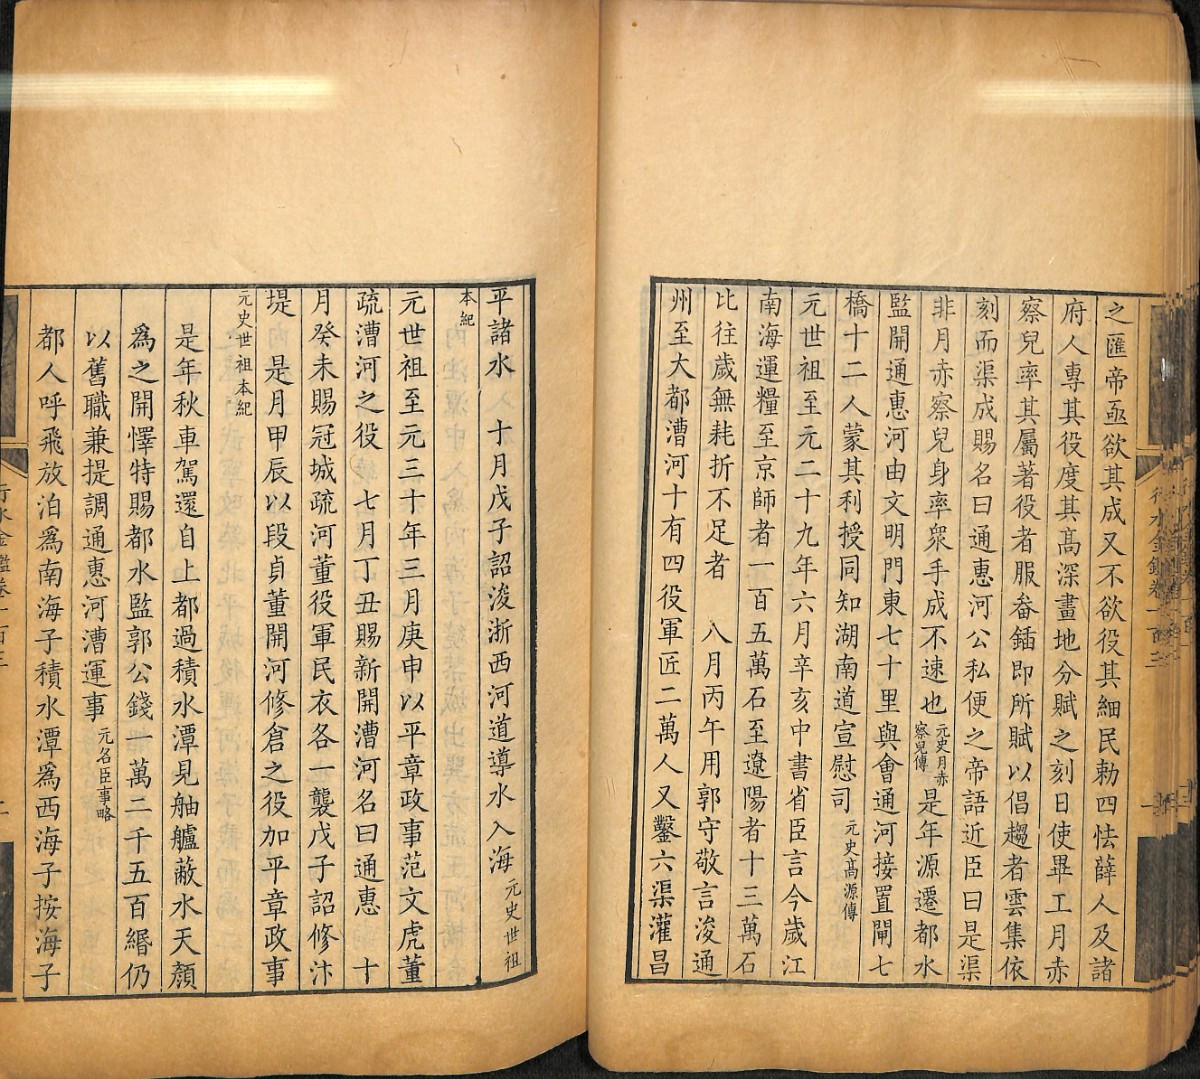 之匯帝亟欲其成又不欲役其細民勅四怯薛人及諸
府人專其役度其高深畫地分賦之刻日使畢工月赤
察兒率其屬著役者服畚鍤即所賦以倡趨者雲集依
刻而渠成賜名曰通惠河公私便之帝語近臣曰是渠
非月赤察兒身率衆手成不速也元史月赤察兒傳是年源遷都水
監開通惠河由文明門東七十里與會通河接置閘七
橋十二人蒙其利授同知湖南道宣慰司元史高源傳
元世祖至元二十九年六月辛亥中書省臣言今歲江
南海運糧至京師者一百五萬石至遼陽者十三萬石
比往歲無耗折不足者　八月丙午用郭守敬言浚通
州至大都漕河十有四役軍匠二萬人又鑿六渠灌昌
平諸水　十月戊子詔浚浙西河道導水入海元史世祖
本紀
元世祖至元三十年三月庚申以平章政事范文虎董
疏漕河之役　七月丁丑賜新開漕河名曰通惠　十
月癸未賜冠城疏河董役軍民衣各一襲戊子詔修汴
堤　是月甲辰以段貞董開河修倉之役加平章政事
元史世祖本紀
是年秋車駕還自上都過積水潭見舳艫蔽水天顏
爲之開懌特賜都水監郭公錢一萬二千五百緡仍
以舊職兼提調通惠河漕運事元名臣事略
都人呼飛放泊爲南海子積水潭爲西海子按海子
行水金鑑卷一百三